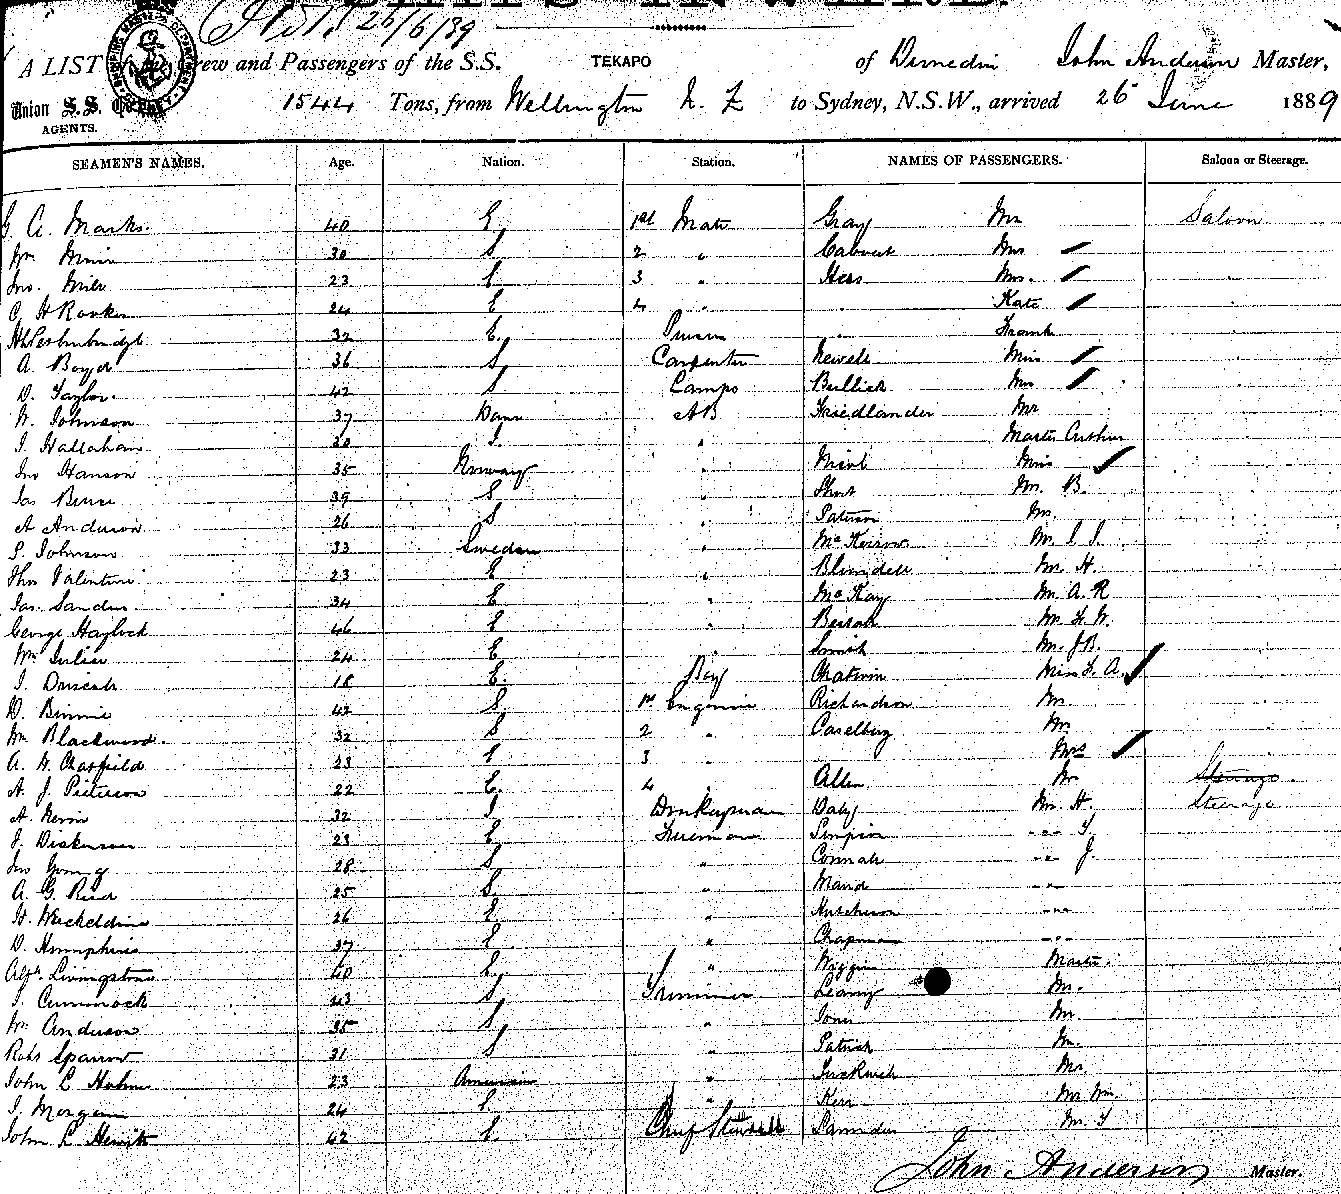 26/6/89
A LIST of the Crew and Passengers of the S.S. TEKAPO of Dunedin John Anderson Master,
Union S.S. Co 1544 Tons, from Wellington N. Z to Sydney, N.S.W., arrived 26 June 1889
AGENTS.
SEAMEN'S NAMES. Age. Nation. Station. NAMES OF PASSENGERS. Saloon or Steerage.
G. A. Marks 40 E 1st Mate Gray Mr Saloon
Wm 30 S 2 " Mrs
Jno. 23 3 " Hess Mrs.
C. H Rooker 24 E 4 " Kate
32 E. Purser " Frank
A. Boyd 36 S Carpenter Newell Miss
D. Taylor 42 S Lamps Bullick Mrs
N. Johnson 37 Dane AB Friedlander Mr
J. Hallahan 20 I. " Master Arthur
Jno Hanson 35 Norway " Miss
Jas Bruce 39 S " Short Mr. B.
A Anderson 26 S " Paterson Mr.
P. Johnson 33 Sweden " McKerrow Mr.
Thos Valentine 23 E " Blundell Mr. H.
Jas. Sander 34 E " McKay Mr. A. R
George Haylock 46 E " Mr.
Wm Julier 24 E " Smith Mr. J B.
J. Driscoll 18 E. Boy Chatwin Miss F. A.
D. Binnie 42 S. 1st Engineer Richardson Mr
Wm Blackwood. 32 S 2 " Caselberg Mr
A. W. Chatfield 23 E 3 " Mrs
A. J. Pieterson 22 E. 4 " Allen Mr Steerage
A. 32 I Donkeyman Daly Mr. H. Steerage
J. Dickenson 23 E Fireman Simpson " "
Jno Young 28 S. " " " J.
A. G. Reid 25 S. " " "
26 E. " Hutcheson " "
D. Humphries 37 E " Chapman " "
Alex. Livingstone 40 " Wiggins Master.
J. Cummock 43 S Trimmer Mr.
Wm Anderson 35 S " Jones Mr.
Robt Sparrow 31 S " Patrick Mr.
John L Holm 23 American " Mr
J. Morgan 24 E. " Kerr Mr. Wm.
John L. Hewitt 42 E. Chief Steward Mr.
John Anderson Master.